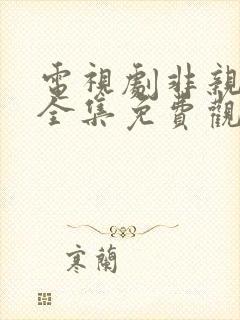 電視劇非親
全集免費觀
寒蘭